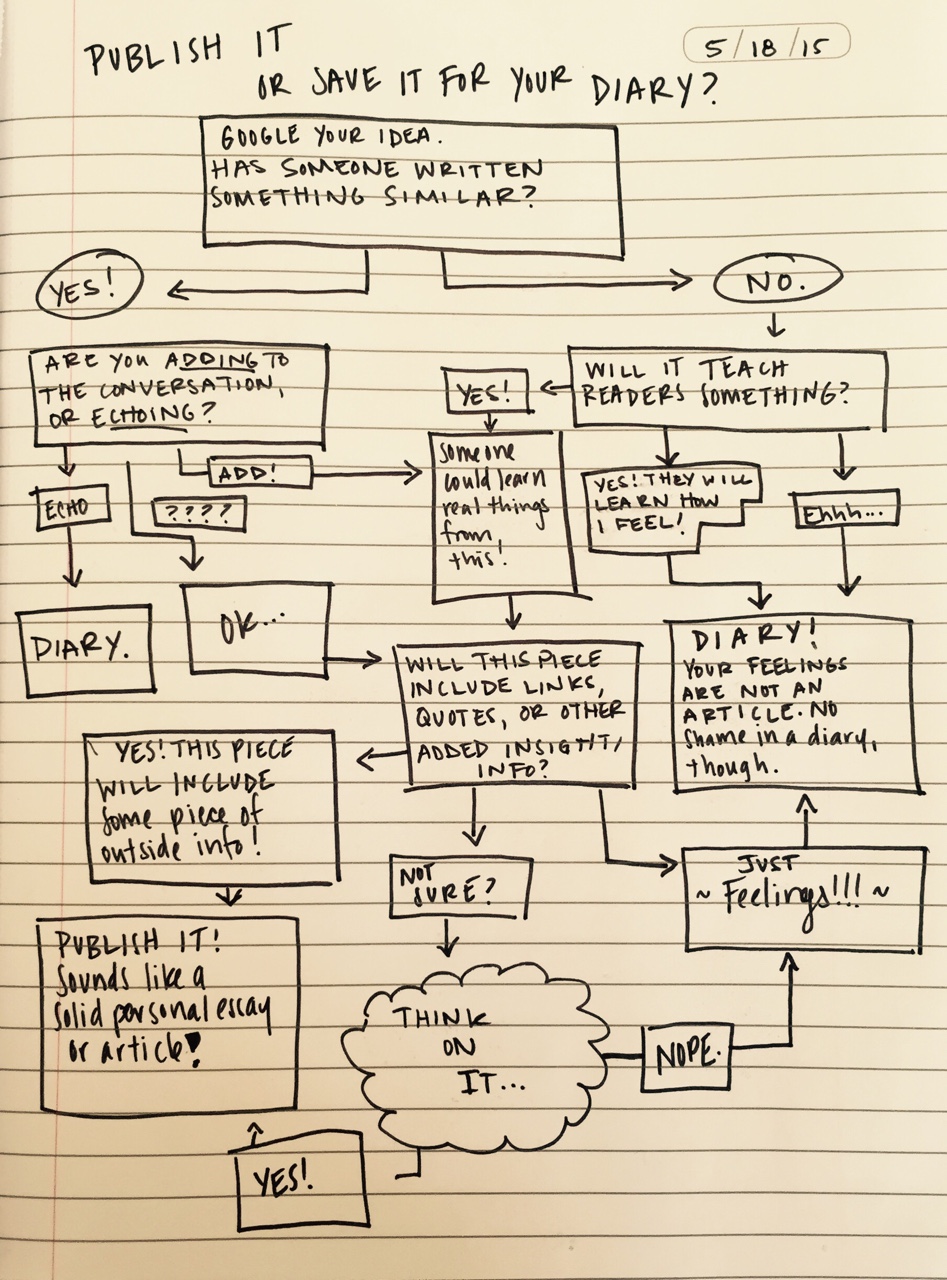 PUBLISH IT
OR SAVE IT FOR YOUR DIARY?
5/18/15
GOOGLE YOUR IDEA.
HAS SOMEONE WRITTEN
SOMETHING SIMILAR?
YES!
NO.
ARE YOU ADDING TO
THE CONVERSATION,
OR ECHOING?
YES!
WILL IT TEACH
READERS SOMETHING?
ADD!
ECHO
????
someone
could learn
real things
from,
this!
YES! THEY WILL
LEARN HOW
I FEEL!
Ehhh...
DIARY.
OK...
WILL THIS PIECE
INCLUDE LINKS,
QUOTES, OR OTHER
ADDED INSIGHT/
INFO?
DIARY!
YOUR FEELINGS
ARE NOT AN
ARTICLE. NO
Shame in a diary,
though.
YES! THIS PIECE
WILL INCLUDE
some piece of
outside info!
NOT
SURE?
JUST
~ Feelings!!! ~
PUBLISH IT!
Sounds like a
solid personal essay
or article!
THINK
ON
IT...
NOPE.
YES!